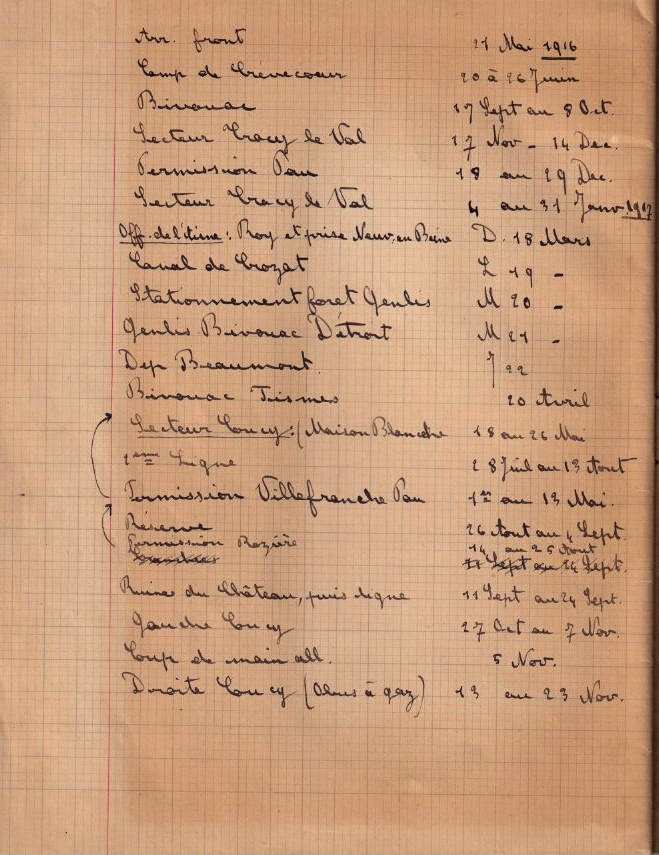 Arr. front 21 Mai 1916
Camp de Crèvecoeur 20 à 26 Juin
Bivouac 17 Sept au 8 Oct.
Secteur Tracy le Val 17 Nov - 14 Dec.
Permission Pau 18 au 29 Dec.
Secteur Tracy le Val 4 au 31 Janv. 1917
Off. de l'Aisne: Roy et prise Neuv. en Beine D. 18 Mars
Canal de Crozat L 19 -
Stationnement foret Genlis M 20 -
Genlis Bivouac Détroit M 21 -
Dep Beaumont. J 22
Bivouac 20 Avril
Secteur Coucy: (Maison Blanche 18 au 26 Mai
2eme Ligne 28 Juil au 13 Aout
Permission Villefranche Pau 1er au 13 Mai.
Réserve 26 Aout au 4 Sept.
Permission Rozière 14 au 25 Aout
Sept au 24 Sept.
Ruines du Château, puis ligne 11 Sept au 24 Sept.
Gauche Coucy 27 Oct au 7 Nov.
Coup de main all. 5 Nov.
Droite Coucy (Obus à gaz) 13 au 23 Nov.